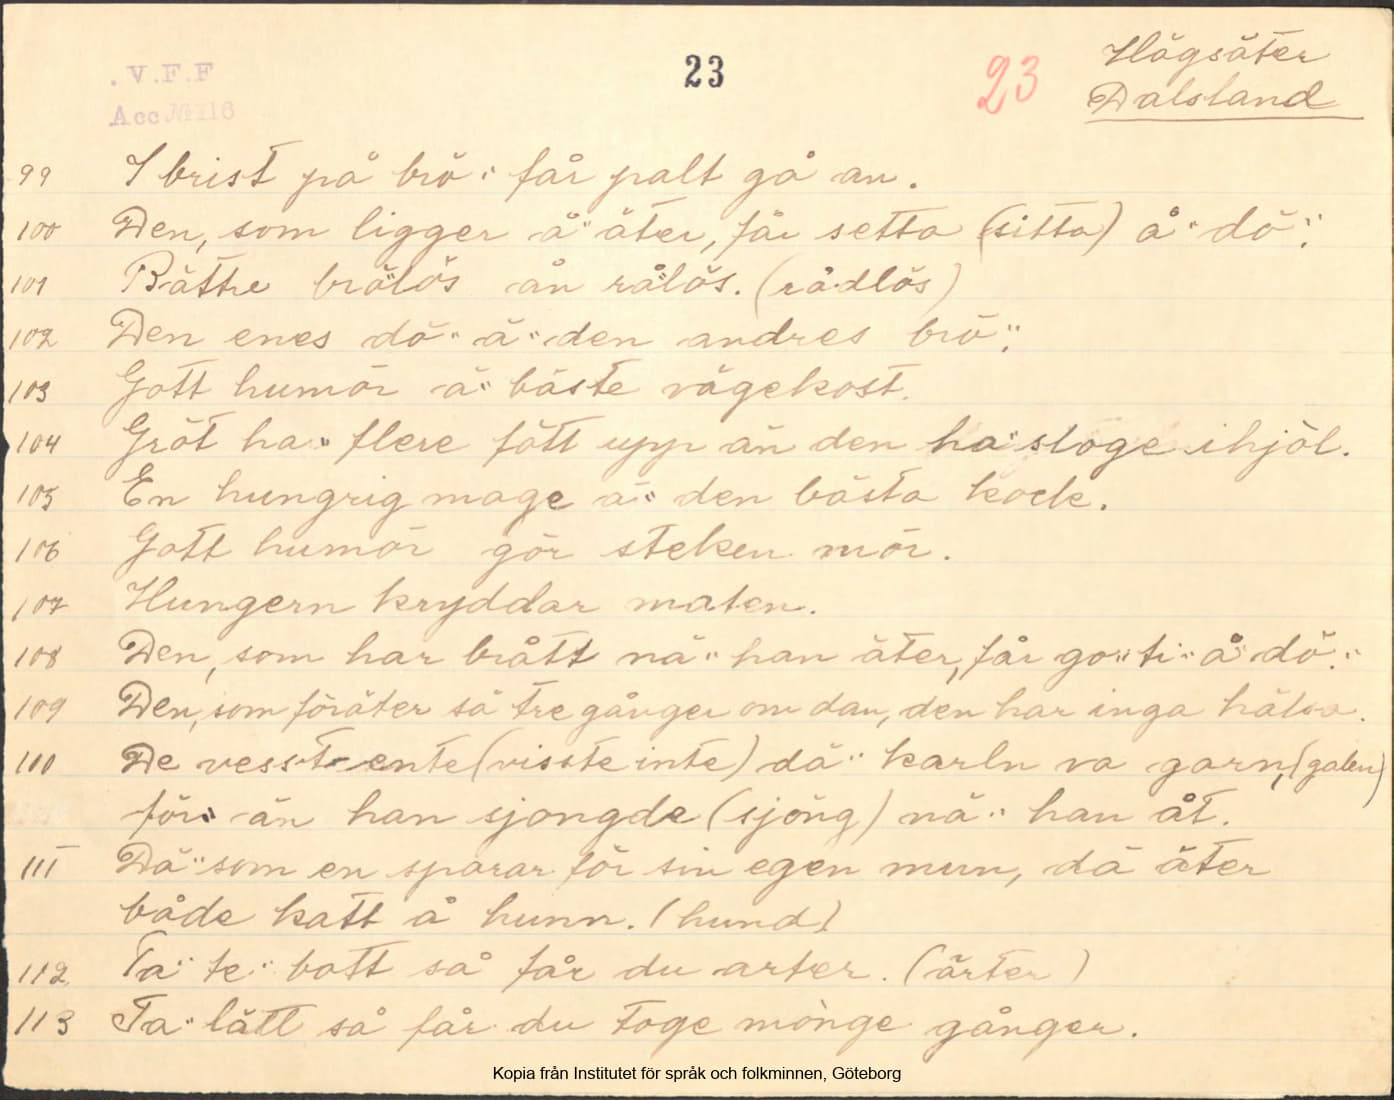 V.F.F
Acc № 116
23
23
Högsäter
Dalsland
99 I brist på brö" får palt gå an.
100 Den, som ligger å" äter, får setta (sitta) å" dö".
101 Bättre brö"lös än rå"lös. (rådlös)
102 Den enes dö" ä" den andres brö".
103 Gott humör ä" bäste vägekost.
104 Gröt ha" flere fött upp än den ha" sloge ihjöl.
105 En hungrig mage ä" den bästa kock.
106 Gott humör gör steken mör.
107 Hungern kryddar maten.
108 Den, som har brått nä" han äter, får go" ti" å" dö".
109 Den, som föräter sä tre gånger om dan, den har inga hälsa.
110 De vesst ente (visste inte) dä" karln va garn, (galen)
för" än han sjongde (sjöng) nä" han åt.
111 Dä" som en sparar för sin egen mun, dä äter
både katt å hunn. (hund)
112 Ta" te" bott så får du arter. (ärter)
113 Ta" lätt så får du toge mönge gånger.
Kopia från Institutet för språk och folkminnen, Göteborg